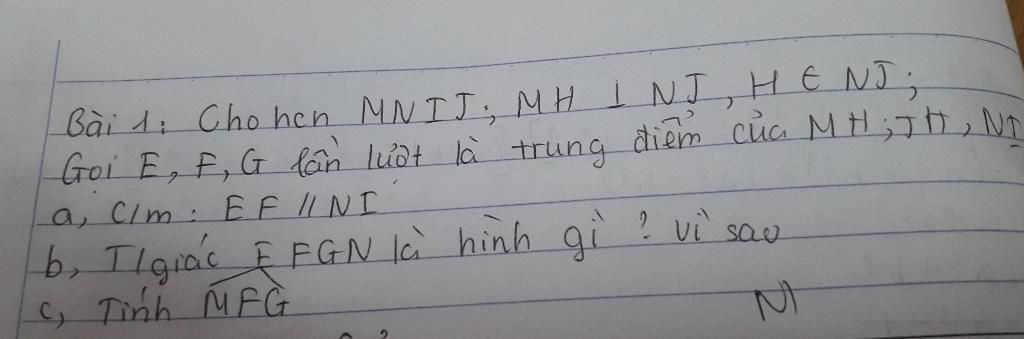 Bài 1: Cho hcn MNIJ; MH ⊥ NJ, H ∈ NJ;
Gọi E, F, G lần lượt là trung điểm của MH; JH, NI
a, C/m: EF // NI
b, T/giác EFGN là hình gì? Vì sao
c, Tính MFG